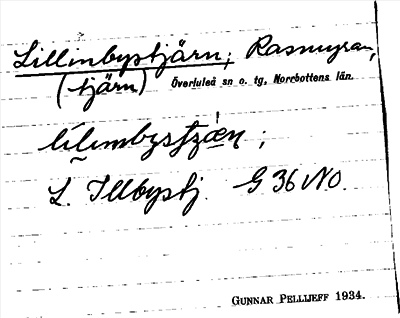 Lillinbystjärn; Rasmyran,
(tjärn) Överluleå sn o. tg, Norrbottens län.
;
L. Illbystj. G 36 NO.
GUNNAR PELLIJEFF 1934.